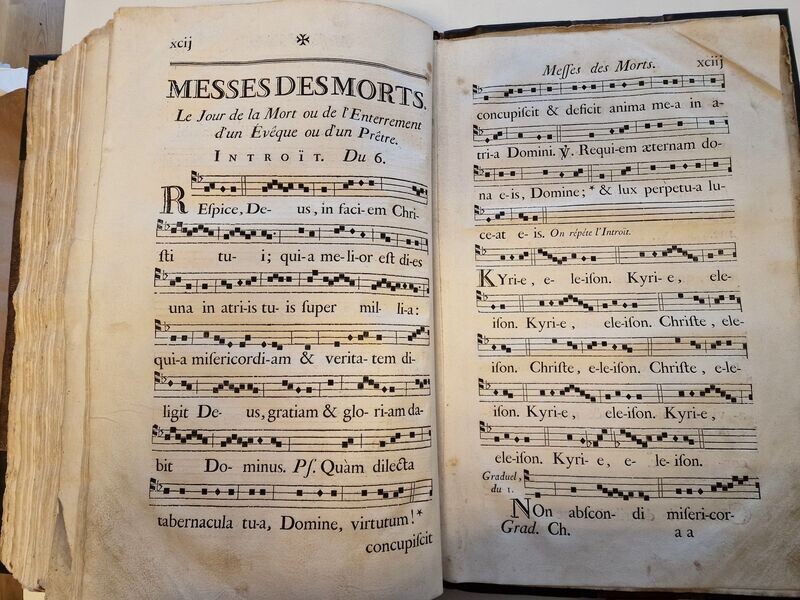 xcij
MESSES DES MORTS.
Le Jour de la Mort ou de l'Enterrement
d'un Evéque ou d'un Prêtre.
INTROÏT. Du 6.
REſpice, De- us, in faci-em Chri-
ſti tu- i; qui-a me-li-or eſt di-es
una in atri-is tu-is ſuper mil- li-a:
qui-a miſericordi-am & verita-tem di-
ligit De- us, gratiam & glo-ri-am da-
bit Do-minus. Pſ. Quàm dilecta
tabernacula tu-a, Domine, virtutum!*
concupiſcit
Meſſes des Morts. xciij
concupiſcit & deficit anima me-a in a-
tri-a Domini. ℣. Requi-em æternam do-
na e-is, Domine; * & lux perpetu-a lu-
ce-at e-is. On répéte l'Introït.
KYri-e, e-le-iſon. Kyri-e, ele-
iſon. Kyri-e, ele-iſon. Chriſte, ele-
iſon. Chriſte, e-le-iſon. Chriſte, e-le-
iſon. Kyri-e, ele-iſon. Kyri-e,
ele-iſon. Kyri-e, e-le-iſon.
Graduel,
du 1.
NOn abſcon- di miſeri-cor-
Grad. Ch. a a